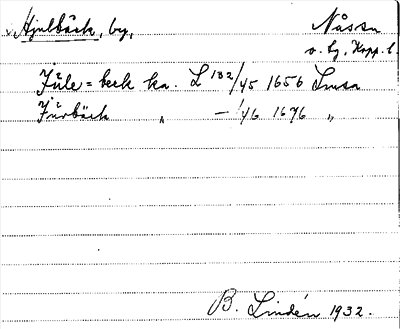 Hjulbäck, by, Nåssu
v. bg, Kopp. l.
Jule=beck ka. L 132/45 1656 Lmsa
Jürbäck " — 1/46 1676 "
B. Lindén 1932.